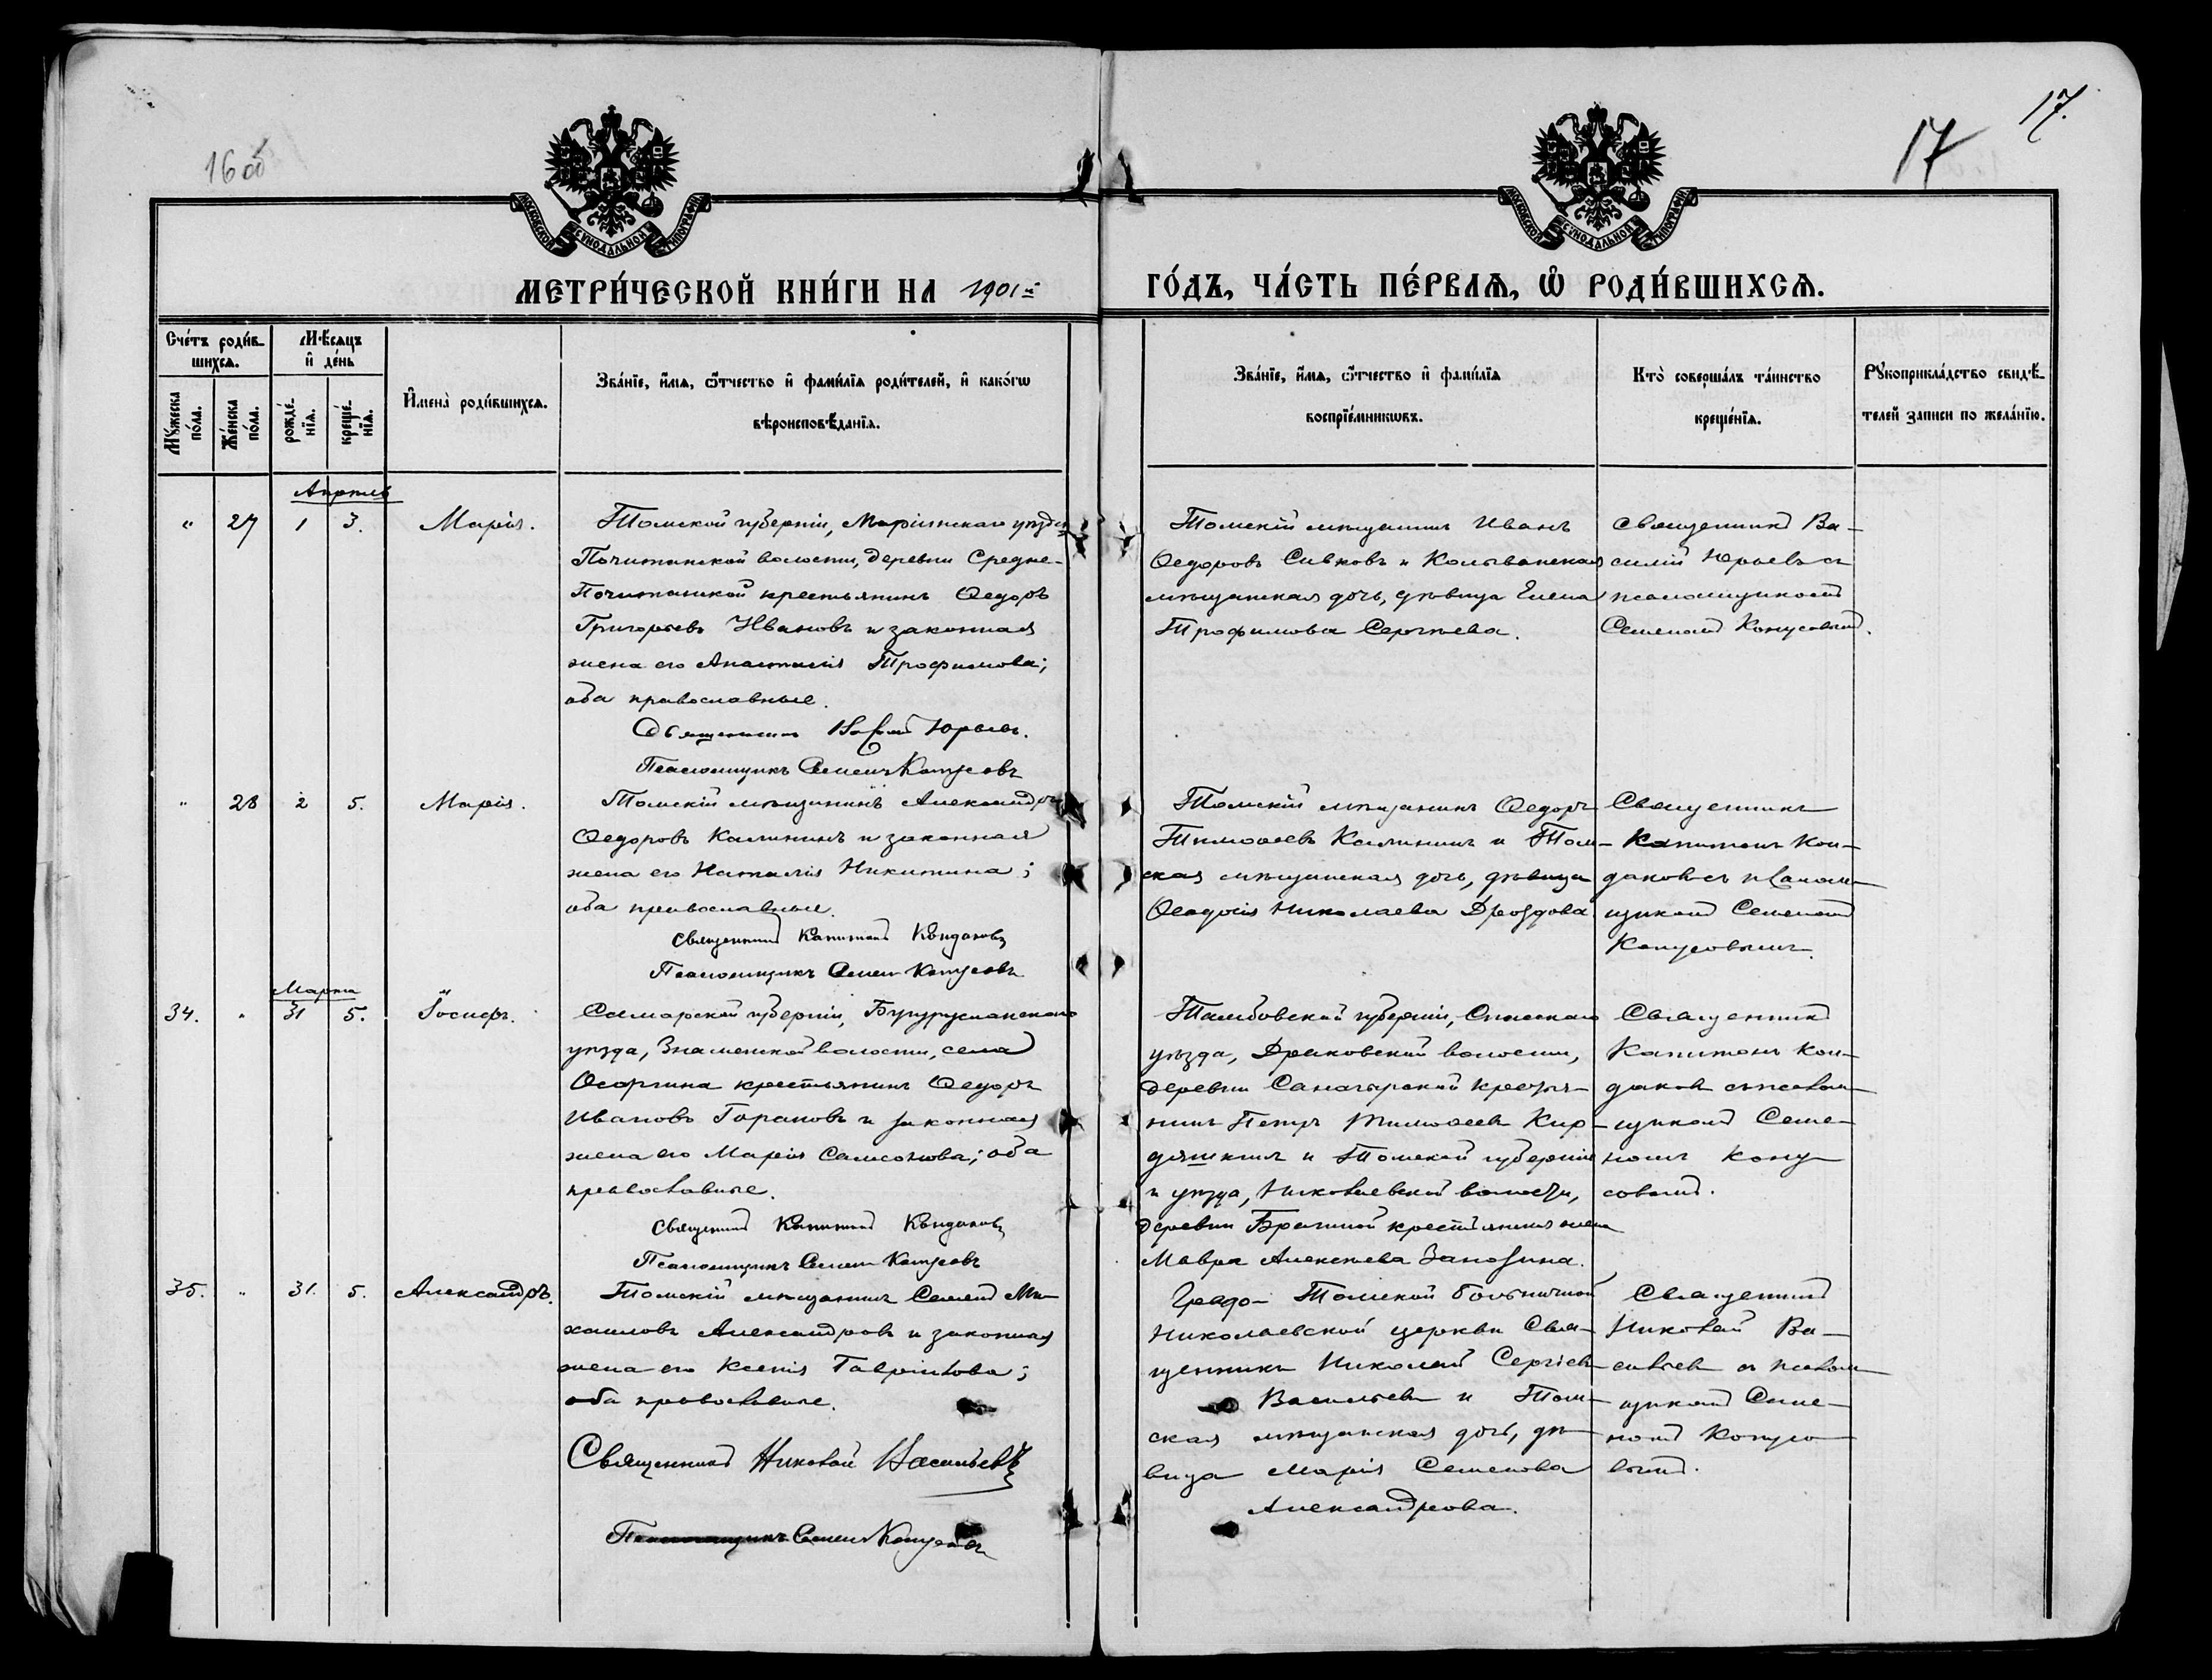 16 об
17
17.
МОСКОВСКОЙ СѴНОДАЛЬНОЙ ТИПОГРАФІИ
МОСКОВСКОЙ СѴНОДАЛЬНОЙ ТИПОГРАФІИ
МЕТРИ́ЧЕСКОЙ КНИ́ГИ НА 1901й
ГО́ДЪ, ЧА́СТЬ ПЕ́РВАѦ, Ѡ҆ РОДИ́ВШИХСѦ.
Сче́тъ роди́в-
шихсѧ.
Мꙋ́жеска по́ла.
Же́нска по́ла.
Мѣ́сѧцъ
и҆ де́нь
рожде́-нїѧ.
креще́-нїѧ.
И҆мена̀ роди́вшихсѧ.
Зва́нїе, и҆́мѧ, ѻ҆́тчество и҆ фами́лїѧ роди́телей, и҆ како́гѡ
вѣроисповѣ́данїѧ.
Зва́нїе, и҆́мѧ, ѻ҆́тчество и҆ фами́лїѧ
воспрїе́мникѡвъ.
Кто̀ соверша́лъ та́инство
креще́нїѧ.
Рꙋкоприкла́дство свидѣ́-
телей записи по жела́нїю.
Апрѣль
" 27 1 3. Марія.
Томской губерніи, Маріинскаго уѣзда
Почитанской волости, деревни Средне-
Почитанской крестьянинъ Ѳедоръ
Григорьевъ Ивановъ и законная
жена его Анастасія Трофимова;
оба православные.
Священникъ Василій Юрьевъ.
Псаломщикъ Семенъ Конусовъ
Томскій мѣщанинъ Иванъ
Ѳедоровъ Сивковъ и Колыванская
мѣщанская дочь, дѣвица Елена
Трофимова Сергѣева.
Священникъ Ва-
силій Юрьевъ съ
псаломщикомъ
Семеномъ Конусовымъ.
" 28 2 5. Марія.
Томскій мѣщанинъ Александръ
Ѳедоровъ Калининъ и законная
жена его Наталія Никитина;
оба православные.
Священникъ Капитонъ Кондаковъ
Псаломщикъ Семенъ Конусовъ
Томскій мѣщанинъ Ѳедоръ
Тимоѳеевъ Калининъ и Том-
ская мѣщанская дочь, дѣвица
Ѳеодосія Николаева Дроздова
Священникъ
Капитонъ Кон-
даковъ съ псалом-
щикомъ Семеномъ
Конусовымъ.
Марта
34. " 31 5. Іосифъ.
Самарской губерніи, Бугурусланскаго
уѣзда, Знаменской волости, села
Осоргина крестьянинъ Ѳедоръ
Ивановъ Горановъ и законная
жена его Марія Самсонова; оба
православные.
Священникъ Капитонъ Кондаковъ
Псаломщикъ Семенъ Конусовъ
Тамбовской губерніи, Спасскаго
уѣзда, Драковской волости,
деревни Саначарской крестья-
нинъ Петръ Тимоѳеевъ Кир-
дяшкинъ и Томской губерніи
и уѣзда, Николаевской волости,
деревни Брагиной крестьянина жена
Мавра Алексѣева Занозина.
Священникъ
Капитонъ Кон-
даковъ съ псалом-
щикомъ Семе-
номъ Кону-
совымъ.
35. " 31. 5. Александръ.
Томскій мѣщанинъ Семенъ Ми-
хаиловъ Александровъ и законная
жена его Ксенія Гавріилова;
оба православные.
Священникъ Николай Васильевъ
Псаломщикъ Семенъ Конусовъ
Градо- Томской больничной
Николаевской церкви Свя-
щенникъ Николай Сергіевъ
Васильевъ и Том-
ская мѣщанская дочь, дѣ-
вица Марія Семенова
Александрова.
Священникъ
Николай Ва-
сильевъ съ псалом-
щикомъ Семе-
номъ Конусо-
вымъ.